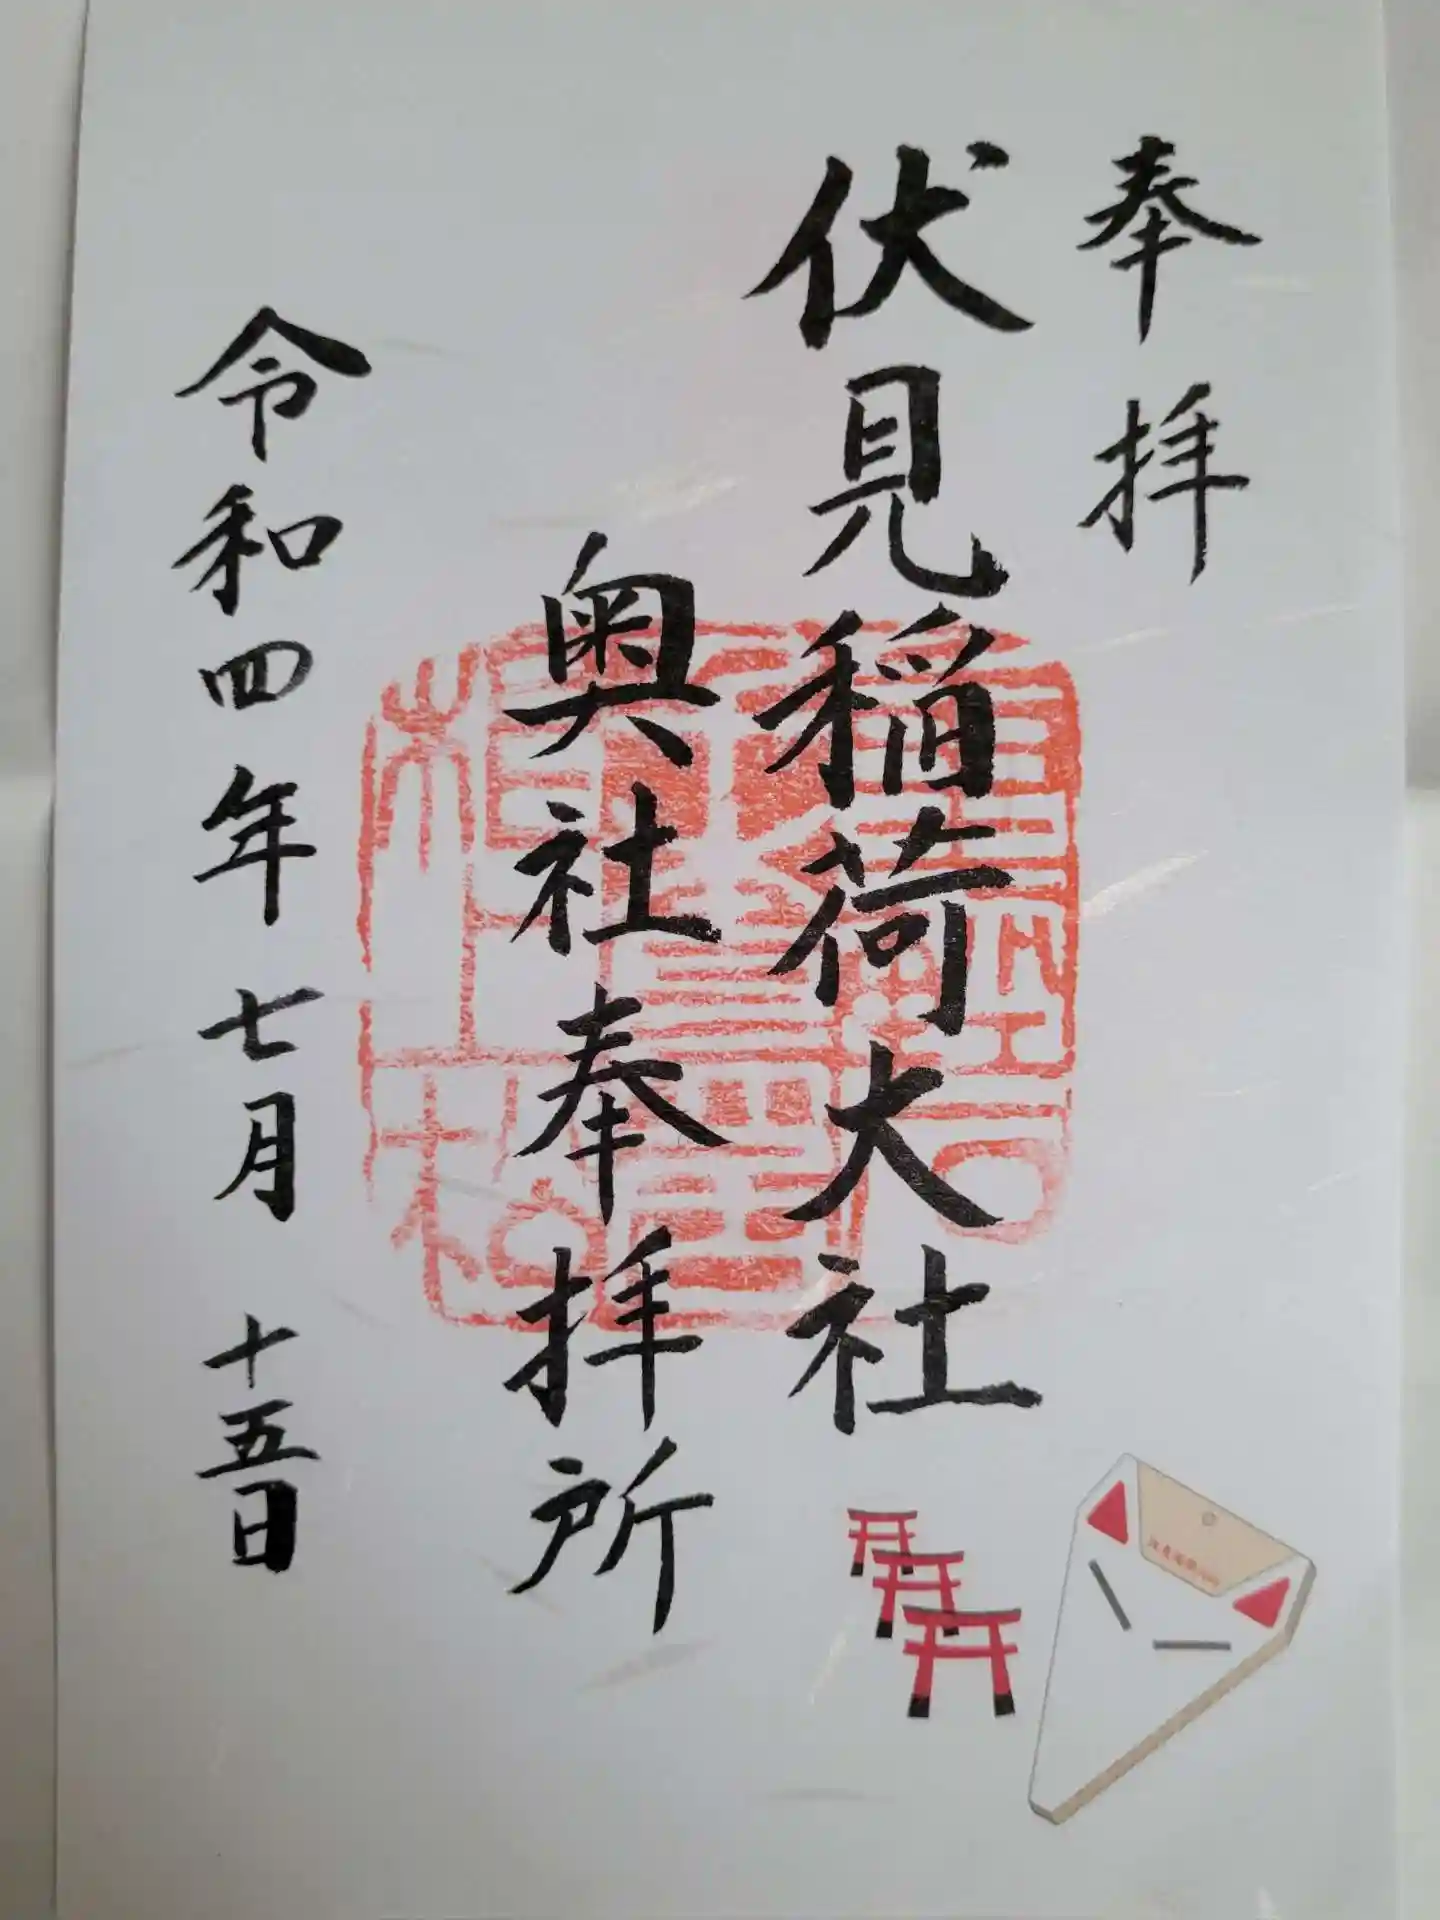 奉拝
伏見稲荷大社
奥社奉拝所
令和四年七月十五日